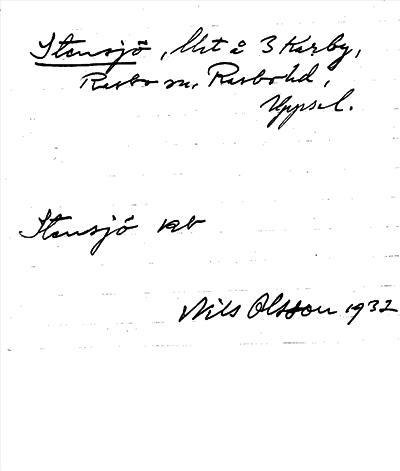 Stensjö, lht å 3 Karby,
Rasbo sn, Rasbo hd,
Uppsal.
Stensjö
Nils Olsson 1932